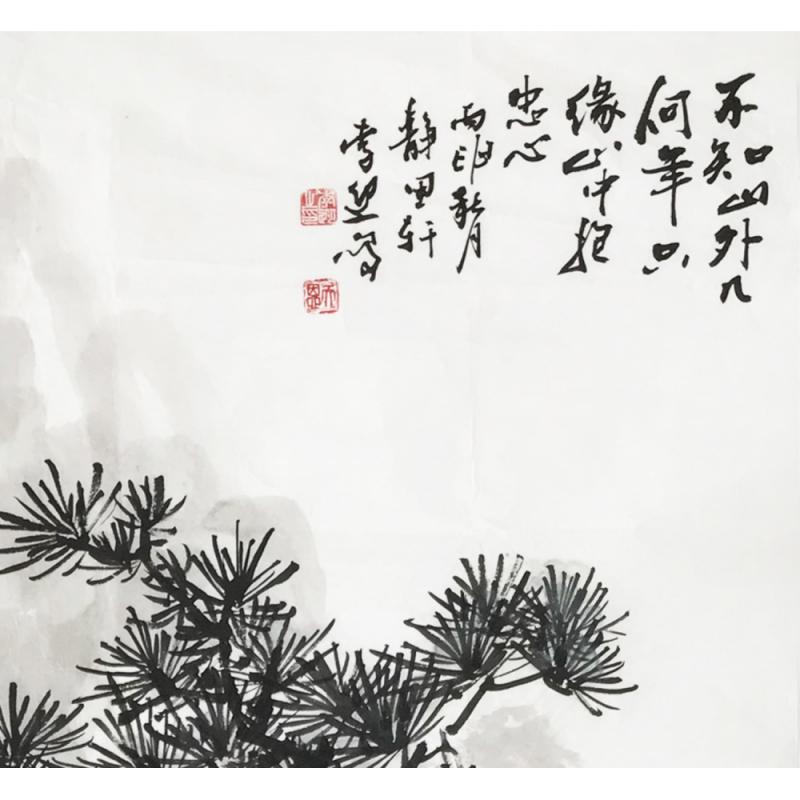 不知山外几
何年只
缘山中抱
忠心
丙申秋月
静思轩
李